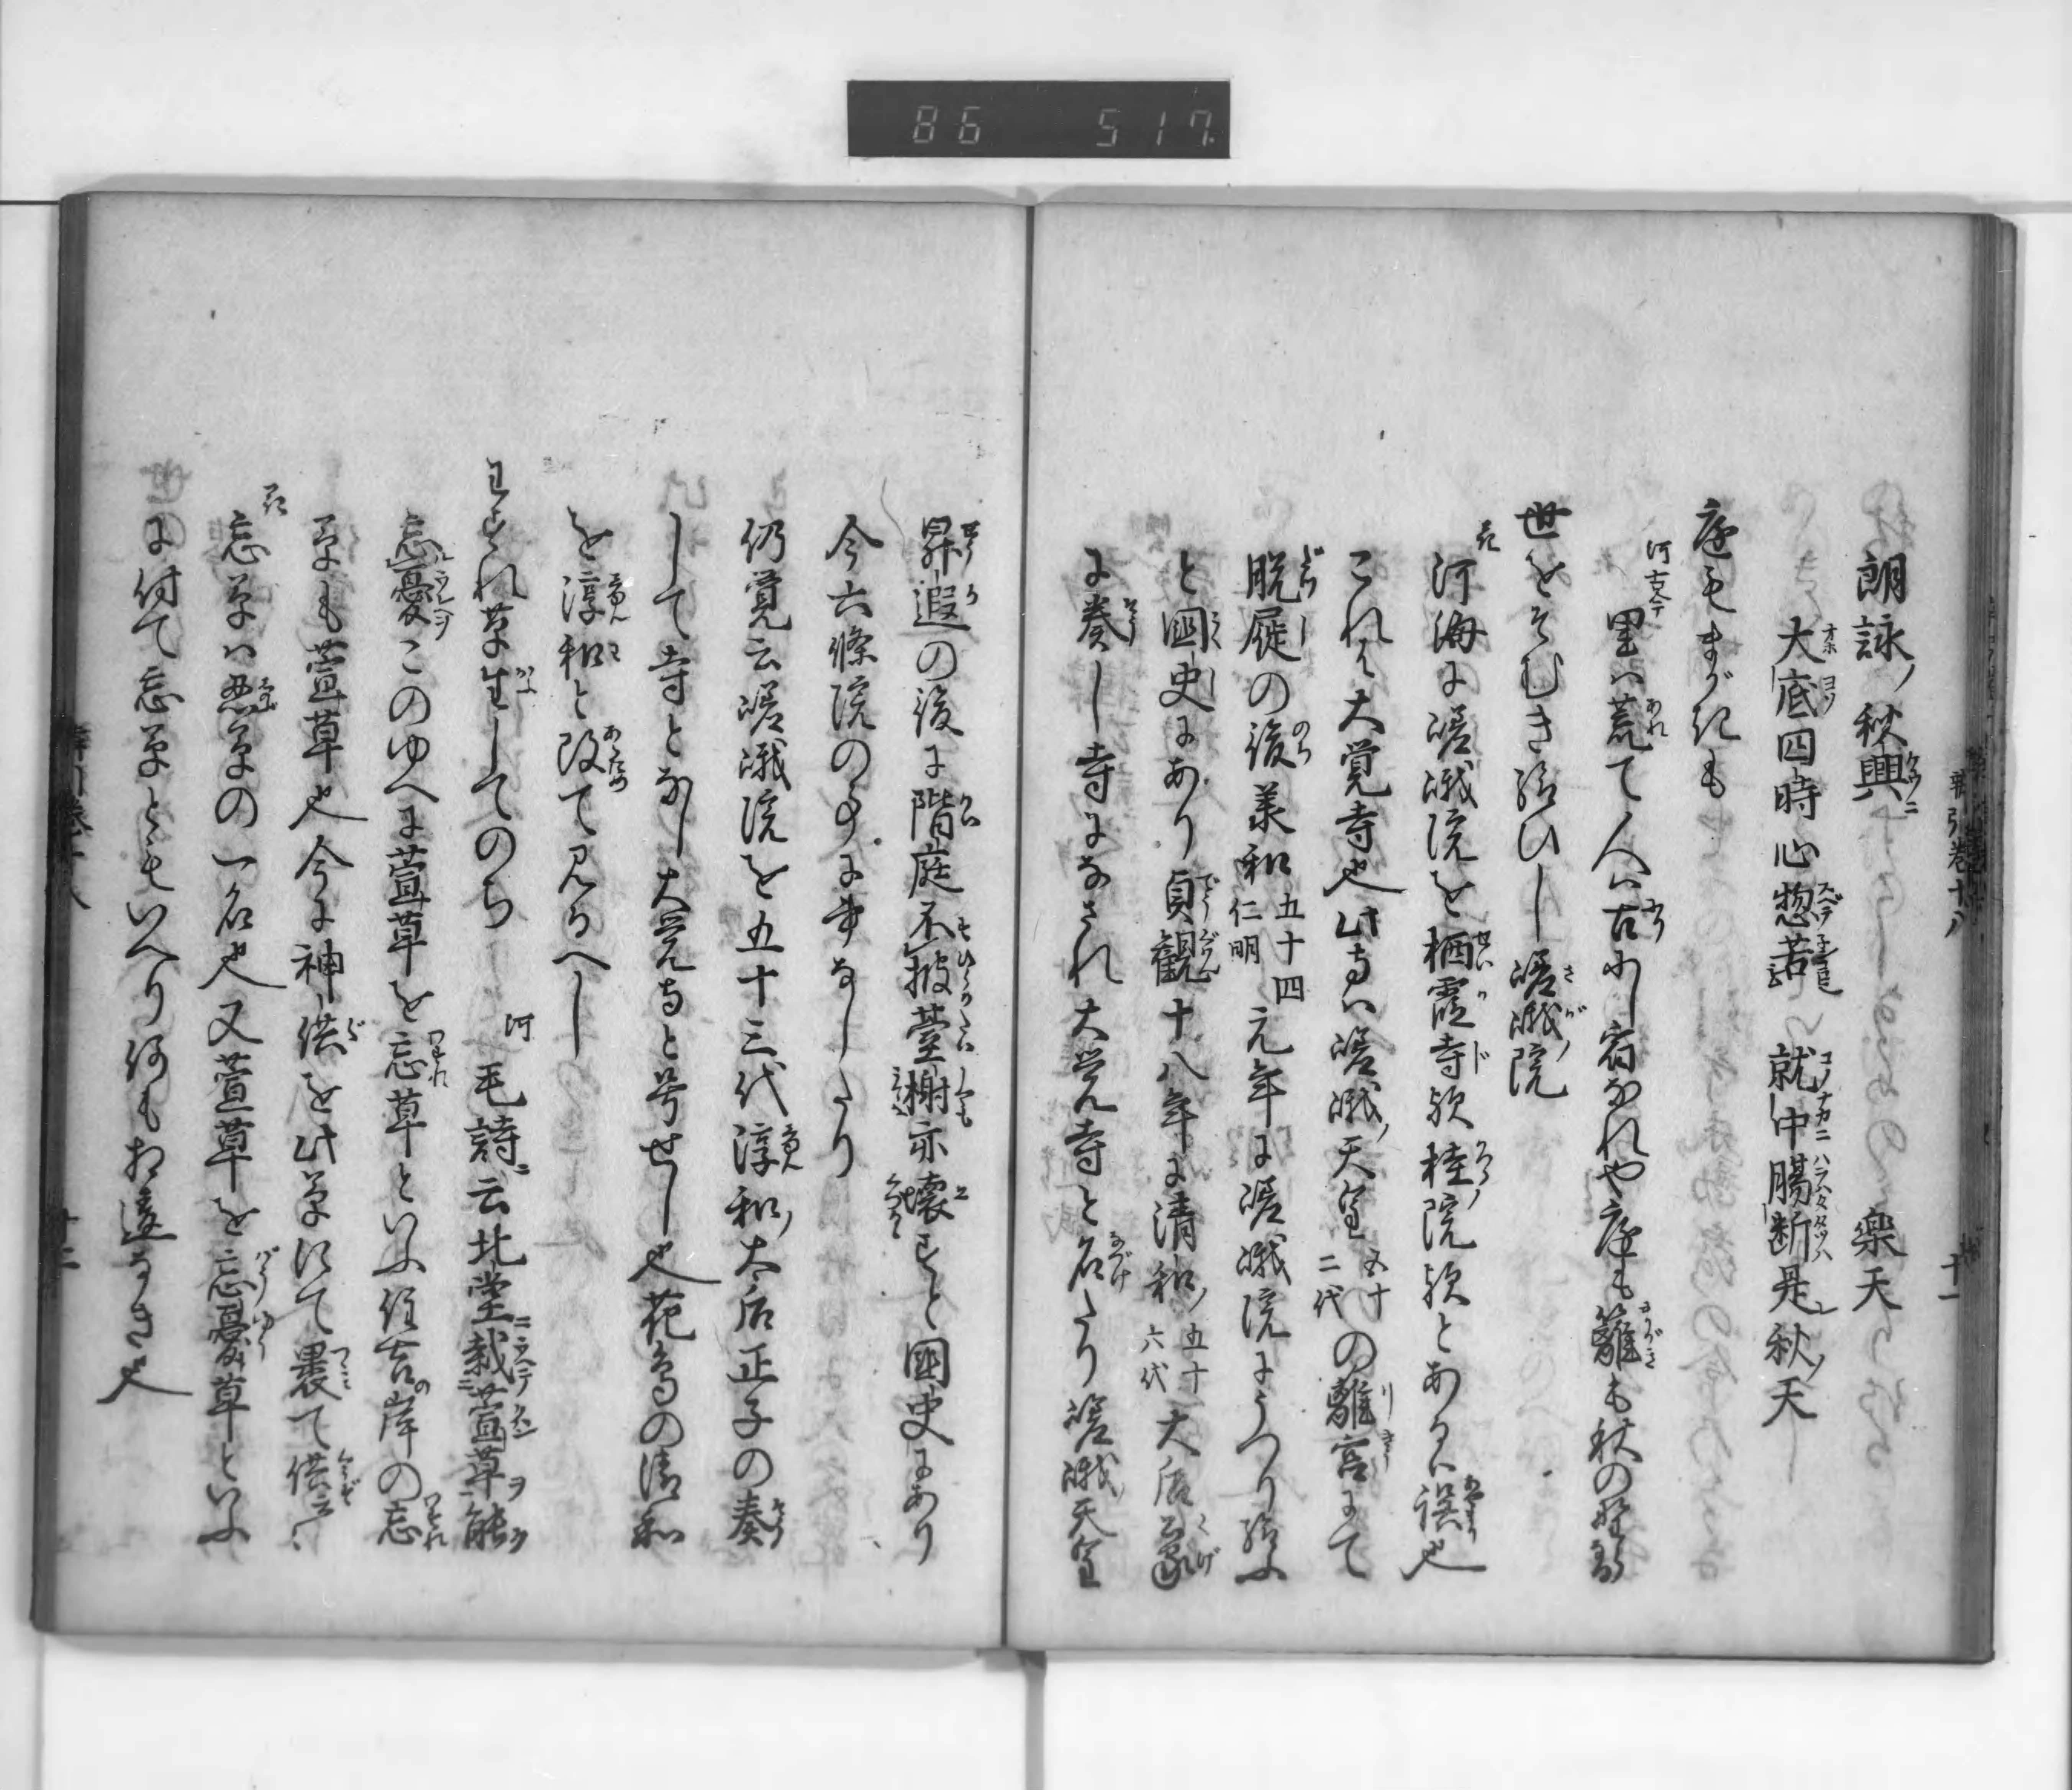 86 517
朗詠ノ秋興ニ 樂天
大底四時心惣苦 就中腸断是秋ノ天
庭もまがきも
里ハ荒て人ハ古にし宿なれや庭も籬も秋の野ら
世をそむき給ひし嵯峨ノ院
河海に嵯峨院を栖霞寺歟桂院歟とあるハ誤也
これハ大覚寺也此寺ハ嵯峨ノ天皇五十二代の離宮にて
脱屣の後承和五十四仁明元年に嵯峨院にうつり給ふ
と國史にあり貞観十八年に清和ノ五十六代大后
に奏し寺になされ大覚寺と名たり嵯峨天皇
昇遐の後に階庭不披臺榭亦壊すと國史にあり
今六條院の事に准なしたり
仍覚云嵯峨院を五十三代淳和ノ太后正子の奏
して寺となし大覚寺と号せし也花鳥の清和
を淳和と改て見るへし
わすれ草生してのち 河 毛詩ニ云北堂栽萱草能
忘憂このゆへに萱草を忘草といふ住吉の岸の忘
草も萱草也今に神供を此草にて裹て供云〻
忘草ハ忍草の一名也又萱草を忘憂草といふ
に付て忘草ともいへり何も相違なき也